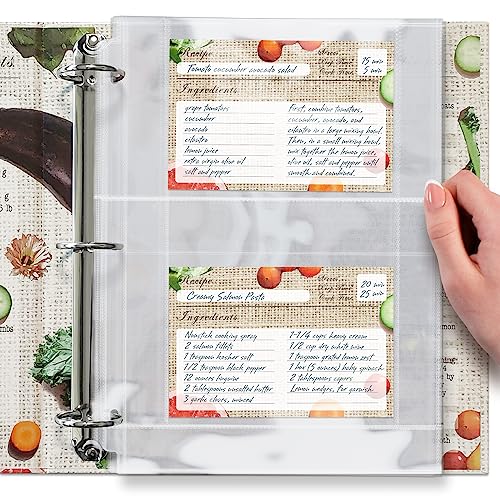 Recipe
Tomato cucumber avocado salad
15 min
5 min
Ingredients
grape tomatoes
cucumber
avocado
cilantro
lemon juice
extra virgin olive oil
salt and pepper
First, combine tomatoes,
cucumber, avocado, and
cilantro in a large mixing bowl.
Then, in a small mixing bowl,
mix together the lemon juice,
olive oil, salt and pepper until
smooth and combined.
Recipe
Creamy Salmon Pasta
20 min
25 min
Ingredients
Nonstick cooking spray
2 salmon fillets
1 teaspoon kosher salt
1/2 teaspoon black pepper
12 ounces linguine
2 tablespoons unsalted butter
3 garlic cloves, minced
1-1/4 cups heavy cream
1/2 cup dry white wine
1 teaspoon grated lemon zest
1 box (5 ounces) baby spinach
2 tablespoons capers
Lemon wedges, for garnish